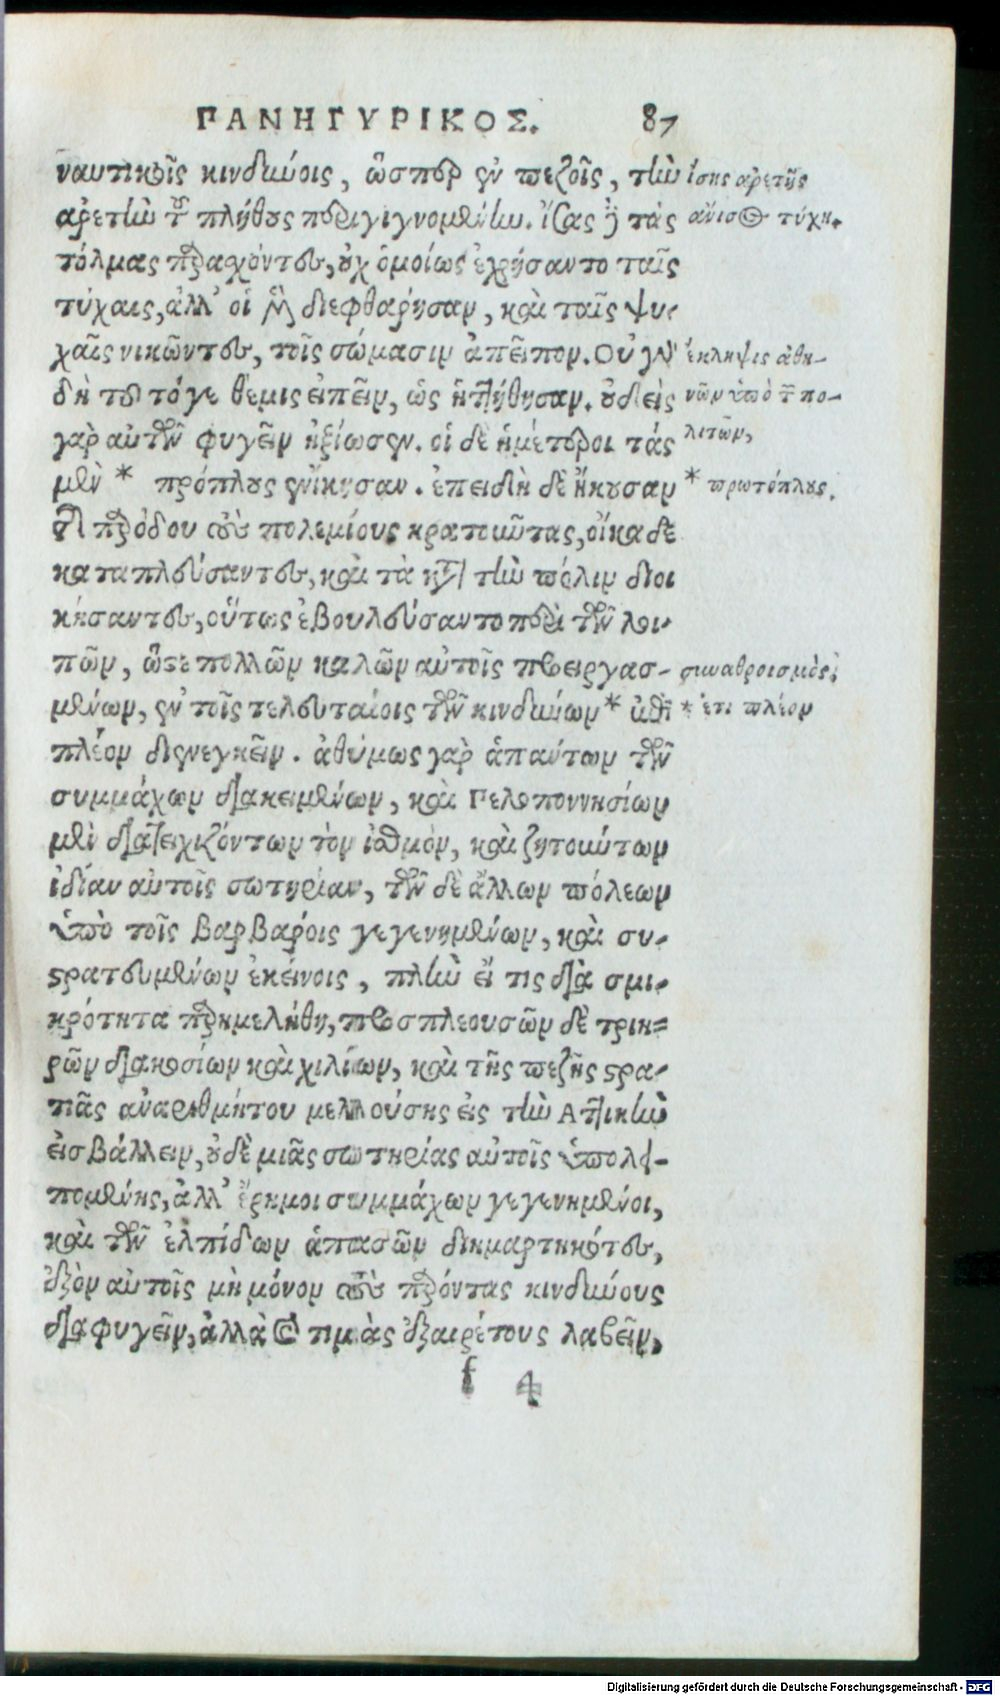 ΠΑΝΗΓΥΡΙΚΟΣ. 87
ναυτικοῖς κινδύνοις, ὥσπερ ἐν πεζοῖς, τὴν
ἀρετὴν τοῦ πλήθους περιγιγνομένην. ἴσας δὲ τὰς
τόλμας παρασχόντες, οὐχ ὁμοίως ἐχρήσαντο ταῖς
τύχαις, ἀλλ' οἱ μὲν διεφθάρησαν, καὶ ταῖς ψυ-
χαῖς νικῶντες, τοῖς σώμασιν ἀπεῖπον. Οὐ γὰρ
δὴ τοῦτό γε θέμις εἰπεῖν, ὡς ἡττήθησαν. οὐδεὶς
γὰρ αὐτῶν φυγεῖν ἠξίωσεν. οἱ δὲ ἡμέτεροι τὰς
μὲν * πρόπλους ἐνίκησαν. ἐπειδὴ δὲ ἤκουσαν
τῆς παρόδου τοὺς πολεμίους κρατοῦντας, οἴκαδε
καταπλεύσαντες, καὶ τὰ κατὰ τὴν πόλιν διοι
κήσαντες, οὕτως ἐβουλεύσαντο περὶ τῶν λοι-
πῶν, ὥστε πολλῶν καλῶν αὐτοῖς προειργασ-
μένων, ἐν τοῖς τελευταίοις τῶν κινδύνων *
πλέον διενεγκεῖν. ἀθύμως γὰρ ἁπάντων τῶν
συμμάχων διακειμένων, καὶ Πελοποννησίων
μὲν διατειχιζόντων τὸν ἰσθμὸν, καὶ ζητούντων
ἰδίαν αὐτοῖς σωτηρίαν, τῶν δὲ ἄλλων πόλεων
ὑπὸ τοῖς βαρβάροις γεγενημένων, καὶ συ-
στρατευμένων ἐκείνοις, πλὴν εἴ τις διὰ σμι-
κρότητα παρημελήθη, προσπλεουσῶν δὲ τριη-
ρῶν διακοσίων καὶ χιλίων, καὶ τῆς πεζῆς στρα-
τιᾶς ἀναριθμήτου μελλούσης εἰς τὴν Ἀττικὴν
εἰσβάλλειν, οὐδὲ μιᾶς σωτηρίας αὐτοῖς ὑπολει-
πομένης, ἀλλ' ἔρημοι συμμάχων γεγενημένοι,
καὶ τῶν ἐλπίδων ἁπασῶν διημαρτηκότες,
ἐξὸν αὐτοῖς μὴ μόνον τοὺς παρόντας κινδύνους
διαφυγεῖν, ἀλλὰ καὶ τιμὰς ἐξαιρέτους λαβεῖν,
f 4
ἴσης ἀρετῆς
ἄνισος τύχη.
ἔκληψις ἀθη-
νῶν ὑπὸ τῶν πο-
λιτῶν,
* πρωτόπλους.
συναθροισμὸς.
* ἔτι πλέον
Digitalisierung gefördert durch die Deutsche Forschungsgemeinschaft - DFG